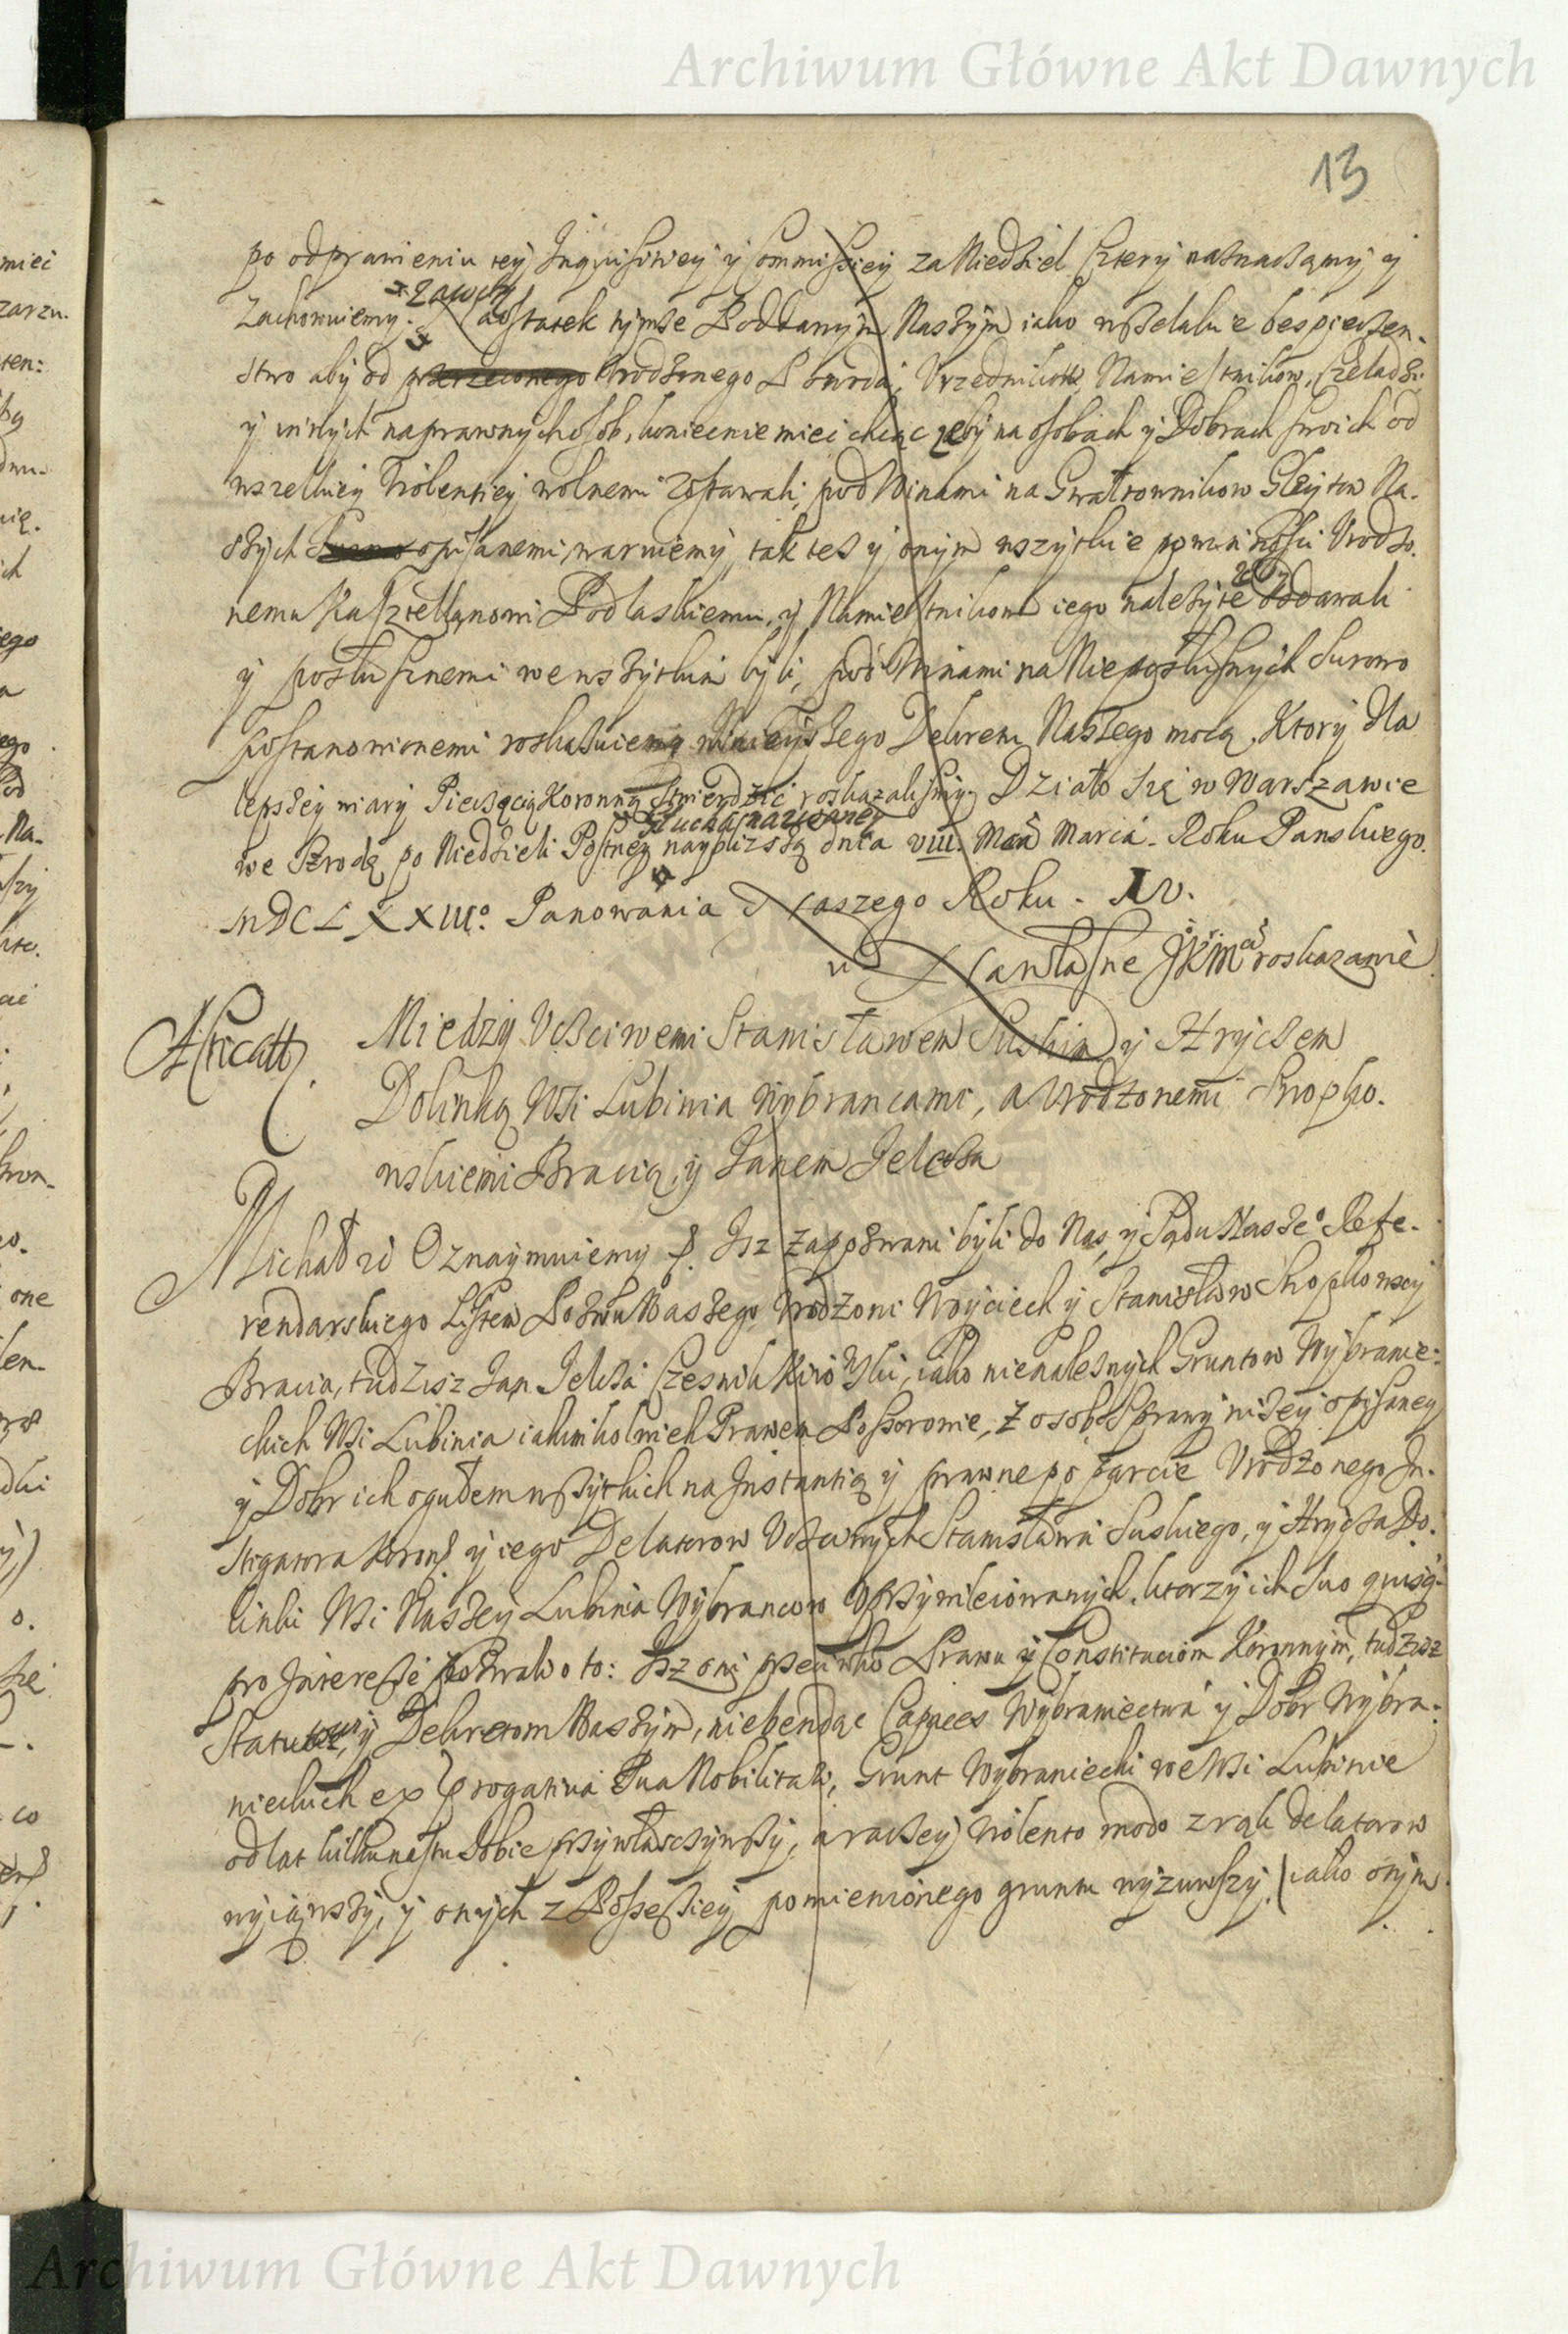 Archiwum Główne Akt Dawnych
13
po odprawieniu tey Inquisitiey y Commissiey za Niedziel Cztery naznaczamy y
Zachowuiemy. Zawczy
aostatek tymże Poddanym Naszym iako wszelakie bespieczen-
stwo aby od przerzeczonego Vrodzonego Starosty, Vrzednikow Namiestnikow, Czeladzi
y innych naprawnych osob, koniecznie mieć chcąc żeby na osobach y Dobrach swoich od
wszelkiey Violentiey wolnemi zostawali, pod Winami na Gwałtownikow Gleytow Na-
szych opisanemi, waruiemy, tak też y onym wszytkie powinnosci Vrodzo-
nemu Kasztellanowi Podlaskiemu, y Namiestnikom iego należyte oddawali
y posłusznemi we wszytkim byli, pod Winami na Nieposłusznych Surowo
postanowionemi roskazuiemy Ninieyszego Dekretu Naszego mocą. Ktory dla
lepszey wiary Pieczęcią Koronną stwierdzić roskazalismy. Działo się w Warszawie
Głucha nazwaney
we Szrodę po Niedzieli Postney naybliższą dnia VIII. Mca Marca. Roku Panskiego
MDCLXXIII.o Panowania Naszego Roku. IV.
Na własne JKMci roskazanie
Między Vczciwemi Stanisławem Suskim y Hryciem
Dolinką Wsi Lubinia Wybrancami, a Vrodzonemi Snopko-
wskiemi Bracią, y Janem Jelcza
Michał &c Oznaymuiemy &. Isz Zapozwani byli do Nas y Sądu Nasze° Refe-
rendarskiego Listem Pozwu Naszego Vrodzoni Woyciech y Stanisław Snopkowscy
Bracia, tudzisz Jan Jelcza Czesnik Kiio Ski, iako nienależnych Gruntow Wybranie-
ckich Wsi Lubinia iakimkolwiek Prawem Possorowie, z osob Sprawy niżey opisaney
y Dobr ich ogułem wszytkich na Instantią y prawne poparcie Vrodzonego In-
stigatora Koron & y iego Delatorow Vczciwych Stanisława Suskiego, y Hrycia Do-
linki Wsi Naszey Lubinia Wybrancow Vprzywileiowanych, ktorzy ich Suo quisq.
pro Interesse pozwali o to: Isz oni przeciwko Prawu y Constitucióm Koronnym, tudzisz
Statutowi, y Dekretom Naszym, niebendąc Capaces Wybraniectwa y Dobr Wybra-
nieckich ex Prrogativa Sua Nobilitatis, Grunt Wybraniecki we Wsi Lubinie
od lat kilkunastu Sobie przywłasczywszy, a raczey violento modo z rąk delatorow
wyiąwszy, y onych z Possessiey pomienionego gruntu wyzuwszy, iako onym
Archiwum Główne Akt Dawnych